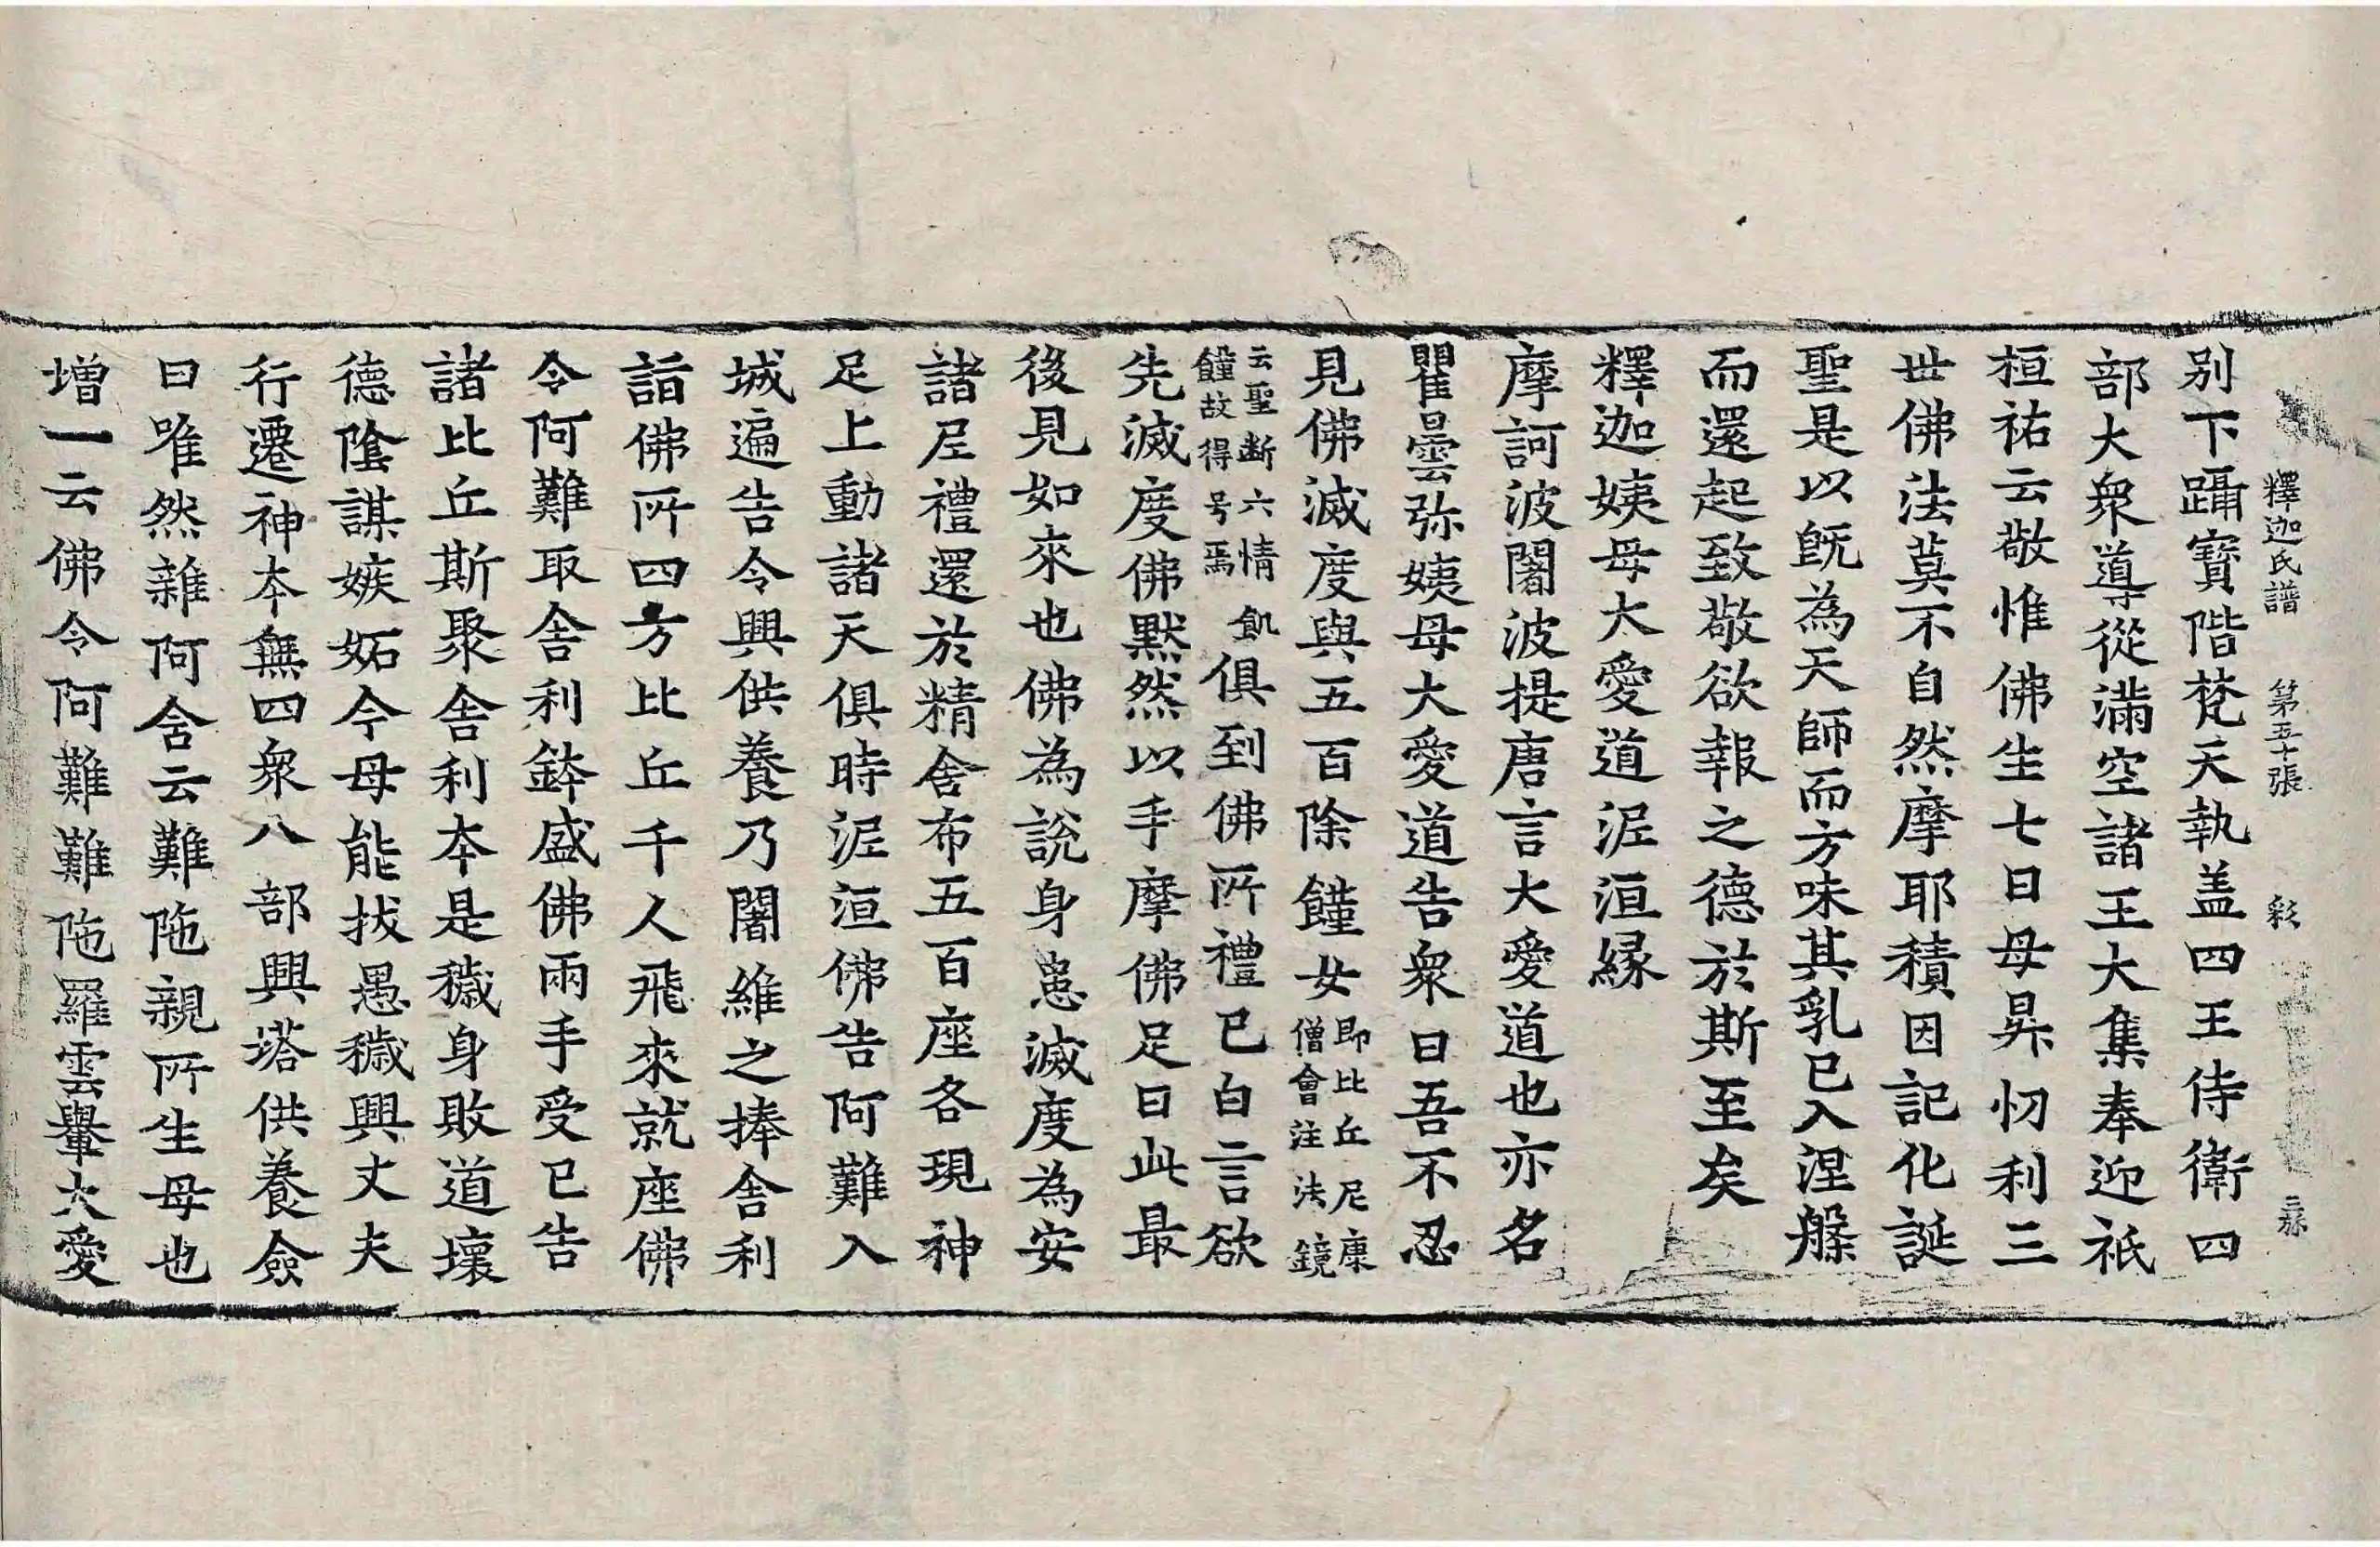 釋迦氏譜 第五十張 彩
别下躡寳階梵天執盖四王侍衛四
部大衆導從滿空諸王大集奉迎祇
桓祐云敬惟佛生七日母昇忉利三
世佛法莫不自然摩耶積因記化誕
聖是以旣為天師而方味其乳已入涅槃
而還起致敬欲報之德於斯至矣
釋迦姨母大愛道泥洹縁
摩訶波闍波提唐言大愛道也亦名
瞿曇弥姨母大愛道告衆曰吾不忍
見佛滅度與五百除饉女即比丘尼康僧會注法鏡
云聖断六情飢饉故得号焉俱到佛所禮已白言欲
先滅度佛默然以手摩佛足曰此最
後見如來也佛為說身患滅度為安
諸尼禮還於精舍布五百座各現神
足上動諸天俱時泥洹佛告阿難入
城遍告令興供養乃闍維之捧舍利
詣佛所四方比丘千人飛來就座佛
令阿難取舍利鉢盛佛兩手受已告
諸比丘斯聚舍利本是穢身敗道壞
德隂謀嫉妬今母能拔愚穢興丈夫
行遷神本無四衆八部興塔供養僉
曰唯然雜阿含云難陁親所生母也
增一云佛令阿難難陁羅雲轝大愛